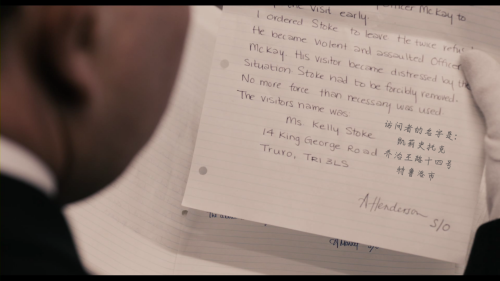 the visit early.
Officer McKay to
I ordered Stoke to leave. He twice
He became violent and assaulted Officer
McKay. His visitor became distressed by the
Situation Stoke had to be forcibly removed.
No more force than necessary was used
The visitors name was:
Ms. Kelly Stoke
14 King George Road
Truro, TR1 3LS
访问者的名字是:
凯莉史托克
乔治王路十四号
特鲁洛市
A Henderson
S/O